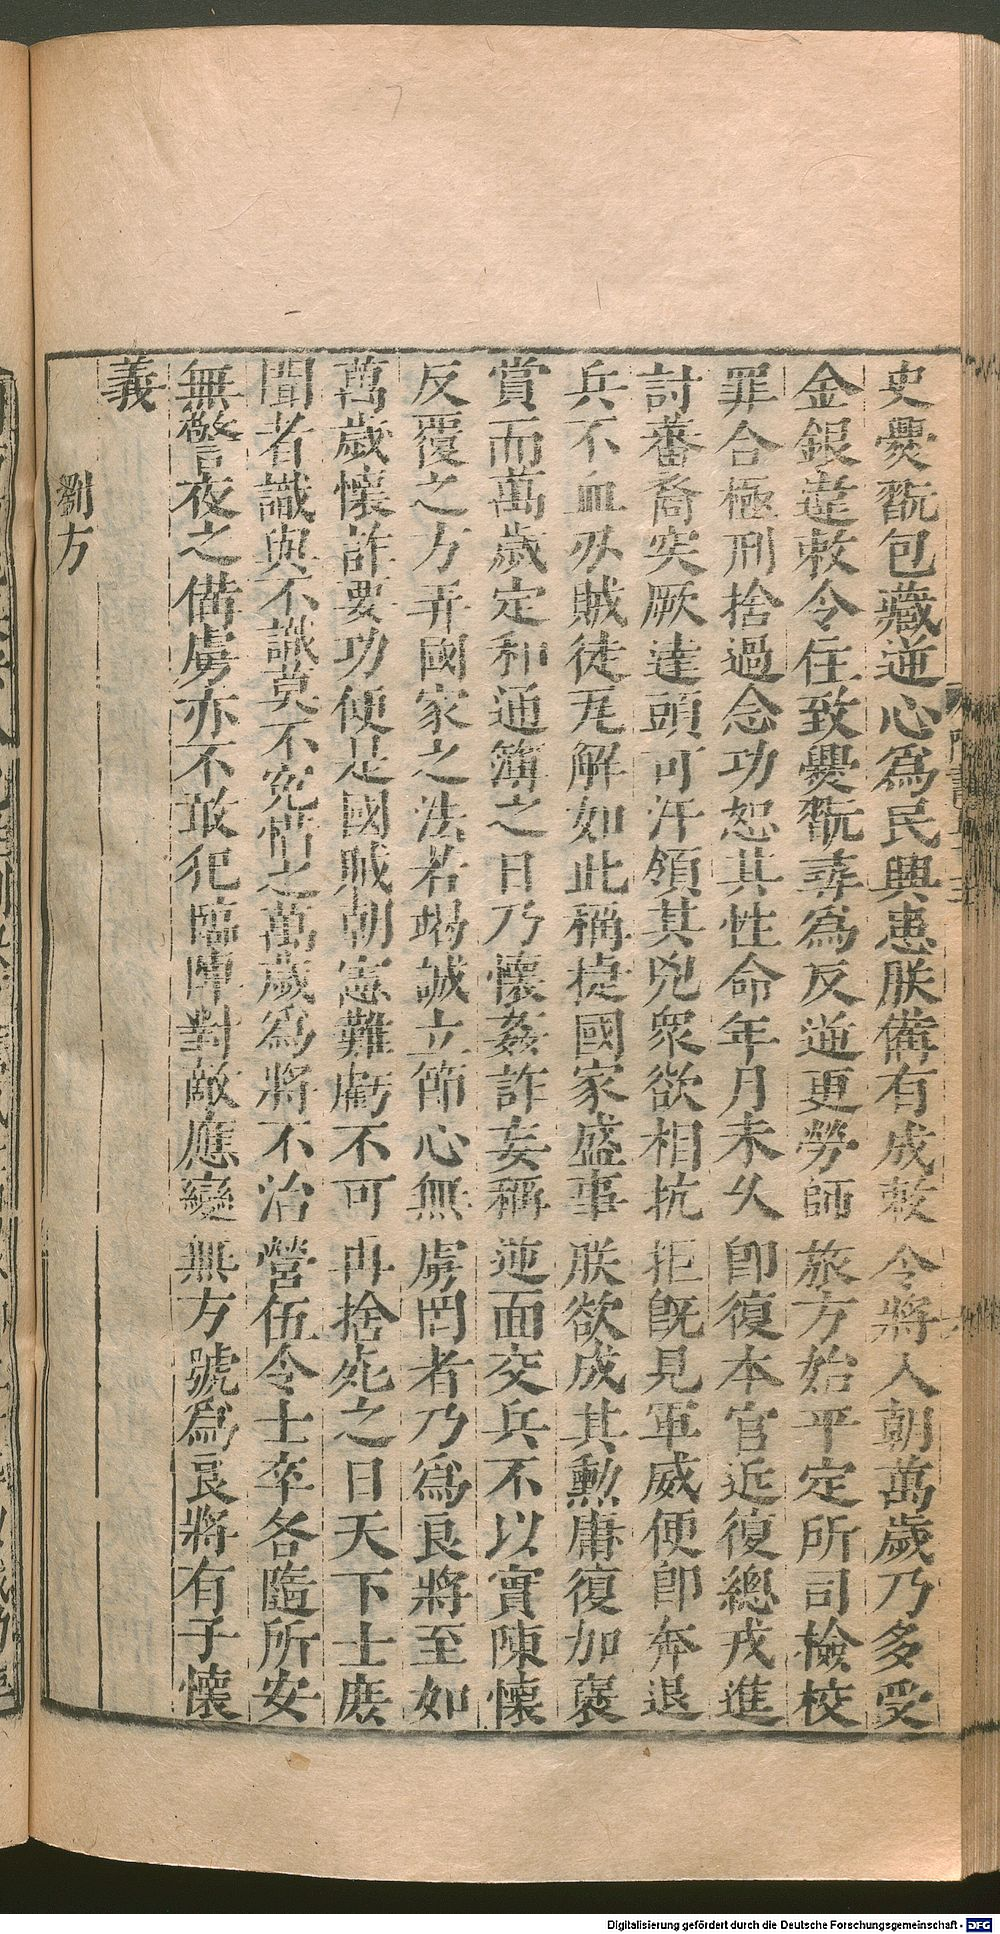 史爨翫包藏逆心爲民興患朕備有成敕令將入朝萬歲乃多受
金銀違敕令住致爨翫尋爲反逆更勞師旅方始平定所司檢校
罪合極刑捨過念功恕其性命年月未久卽復本官近復總戎進
討蕃裔突厥達頭可汗領其兇衆欲相抗拒旣見軍威便卽奔退
兵不血刃賊徒瓦解如此稱捷國家盛事朕欲成其勲庸復加褒
賞而萬歲定和通簿之日乃懷姦詐妄稱逆面交兵不以實陳懷
反覆之方弄國家之法若竭誠立節心無虜罔者乃爲良將至如
萬歲懷詐要功便是國賊朝憲難虧不可再捨死之日天下士庶
聞者識與不識莫不寃惜之萬歲爲將不治營伍令士卒各隨所安
無警夜之備虜亦不敢犯臨陣對敵應變無方號爲良將有子懷
義
劉方
Digitalisierung gefördert durch die Deutsche Forschungsgemeinschaft - DFG